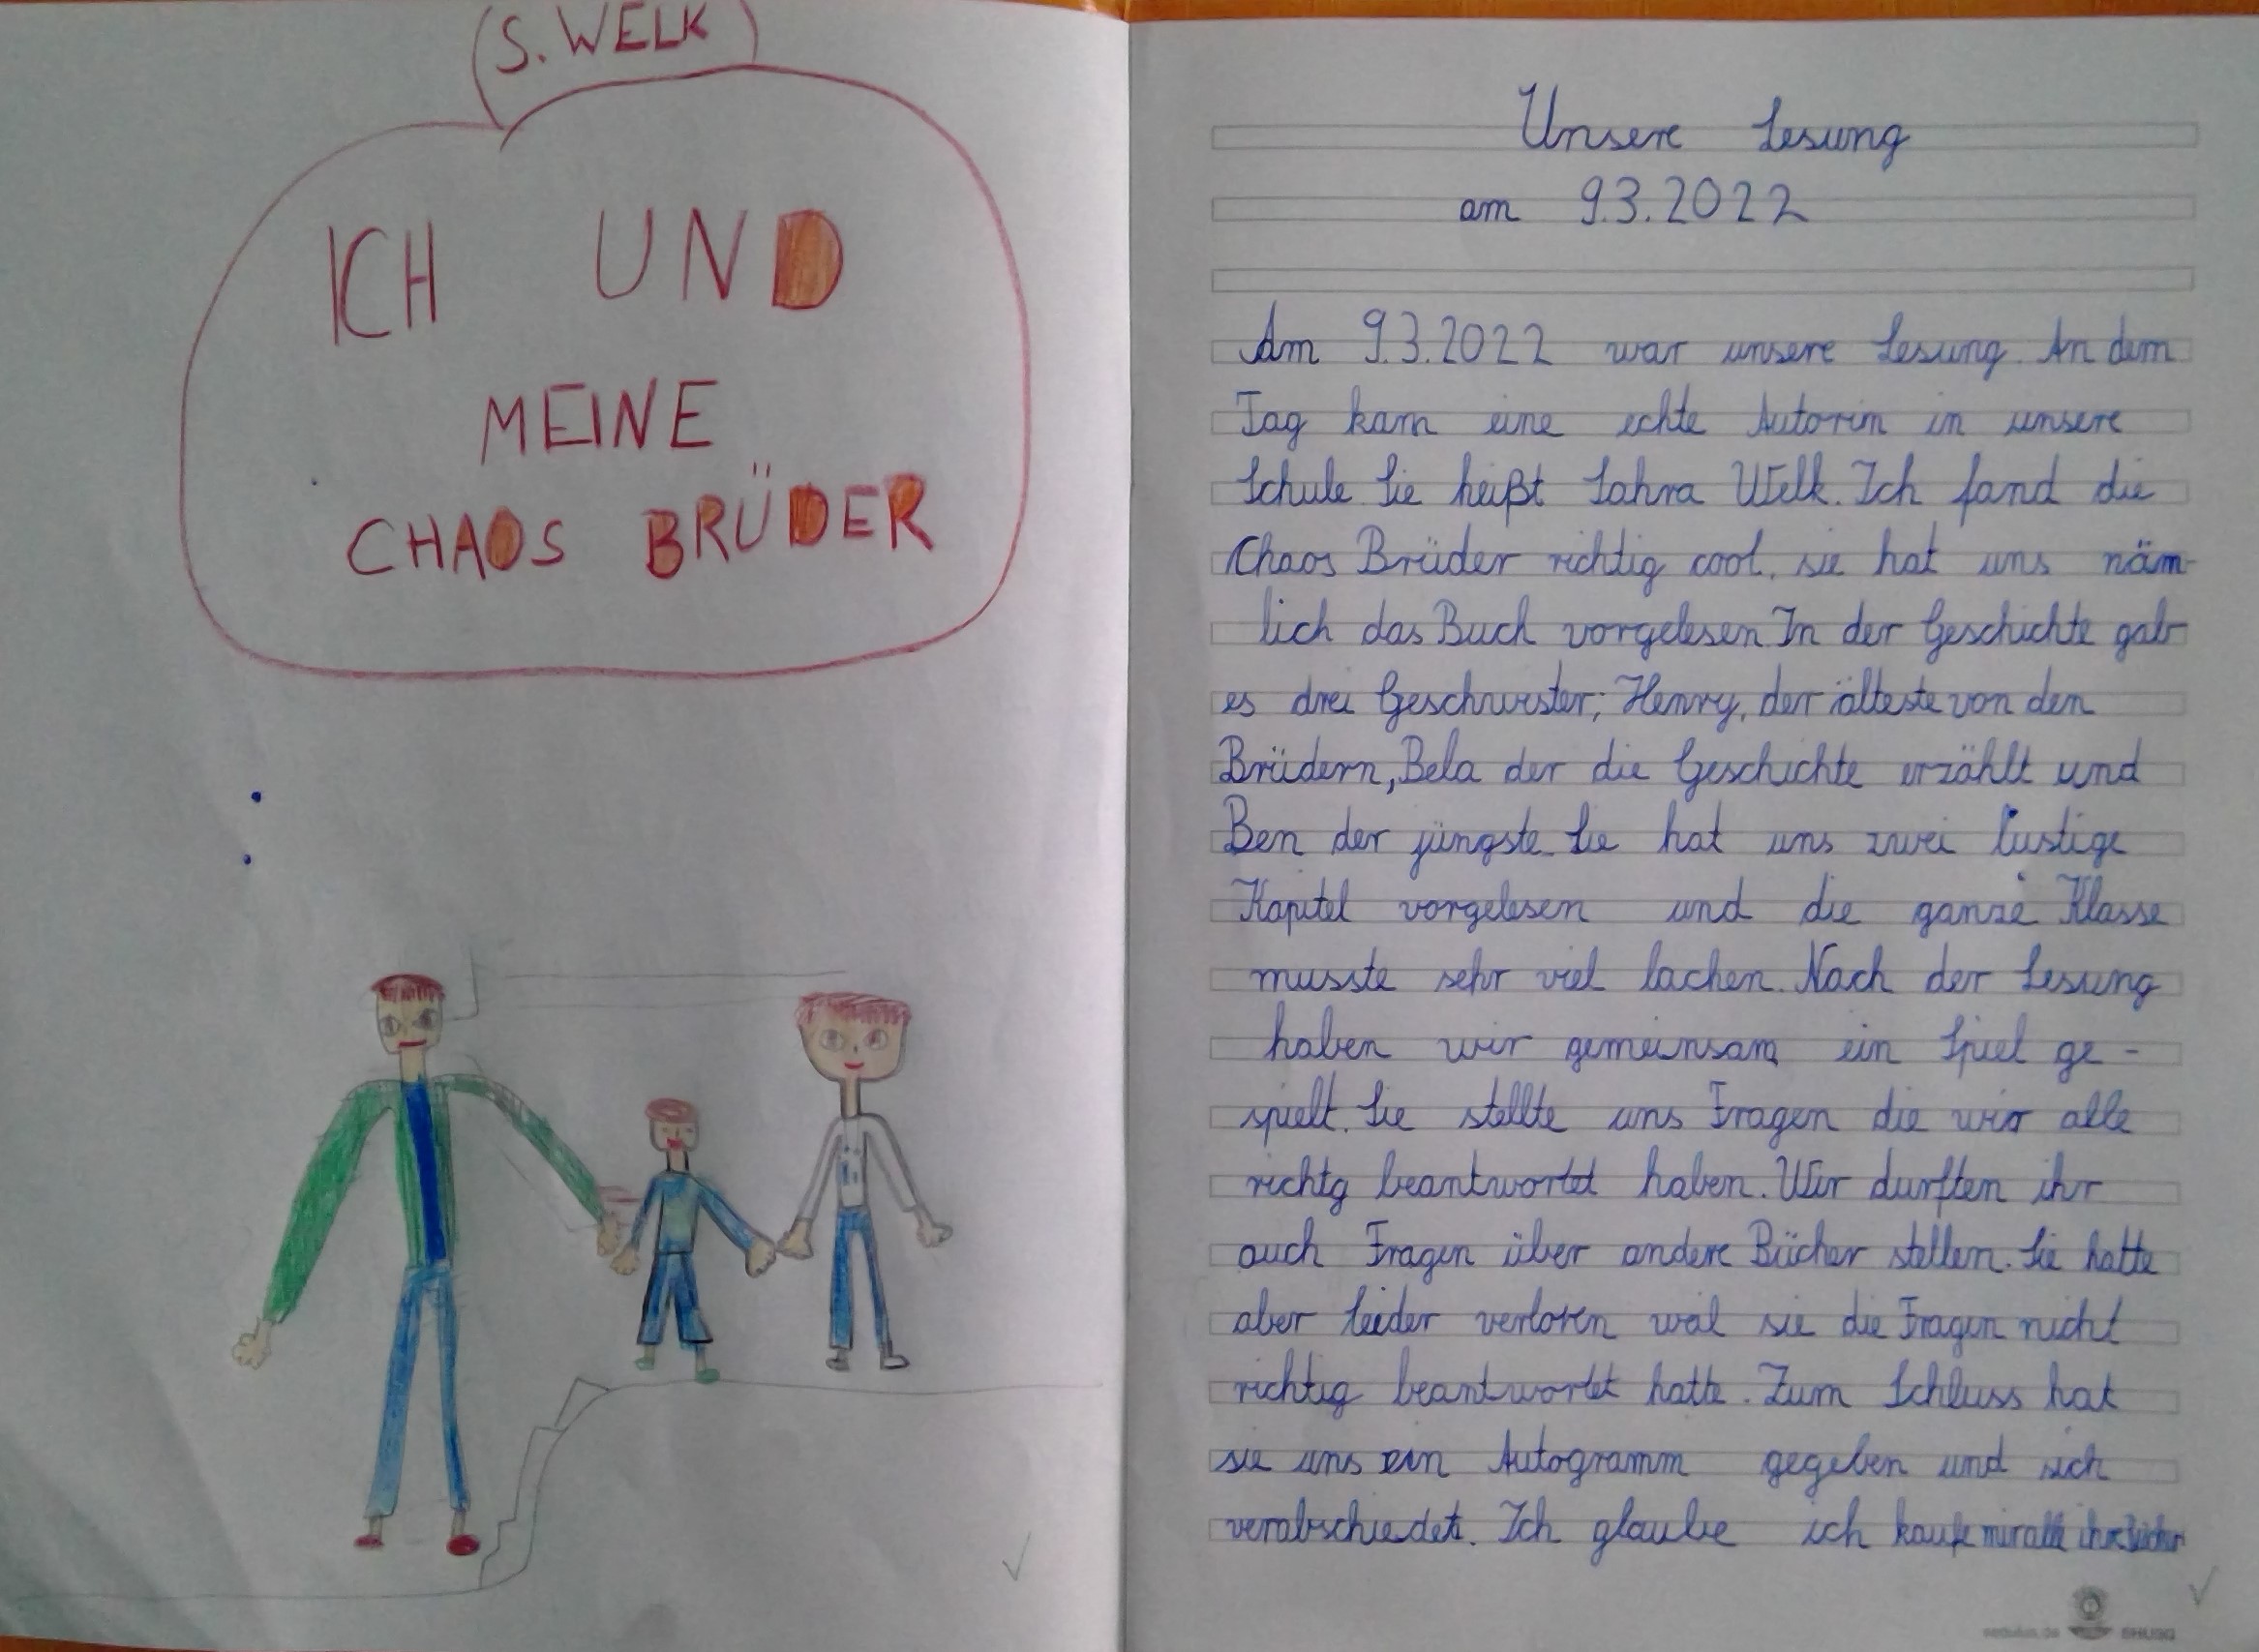 (S. WELK)
ICH UND
MEINE
CHAOS BRÜDER
Unsere Lesung
am 9.3.2022
Am 9.3.2022 war unsere Lesung. An dem
Tag kam eine echte Autorin in unsere
Schule. Sie heißt Sahra Welk. Ich fand die
Chaos Brüder richtig cool, sie hat uns näm-
lich das Buch vorgelesen. In der Geschichte gab
es drei Geschwister; Henry, der älteste von den
Brüdern, Bela der die Geschichte erzählt und
Ben der jüngste. Sie hat uns zwei lustige
Kapitel vorgelesen und die ganze Klasse
musste sehr viel lachen. Nach der Lesung
haben wir gemeinsam ein Spiel ge-
spielt. Sie stellte uns Fragen die wir alle
richtg beantwortet haben. Wir durften ihr
auch Fragen über andere Bücher stellen. Sie hatte
aber leider verloren weil sie die Fragen nicht
richtig beantwortet hatte. Zum Schluss hat
sie uns ein Autogramm gegeben und sich
verabschiedet. Ich glaube ich kaufe mir alle ihre Bücher